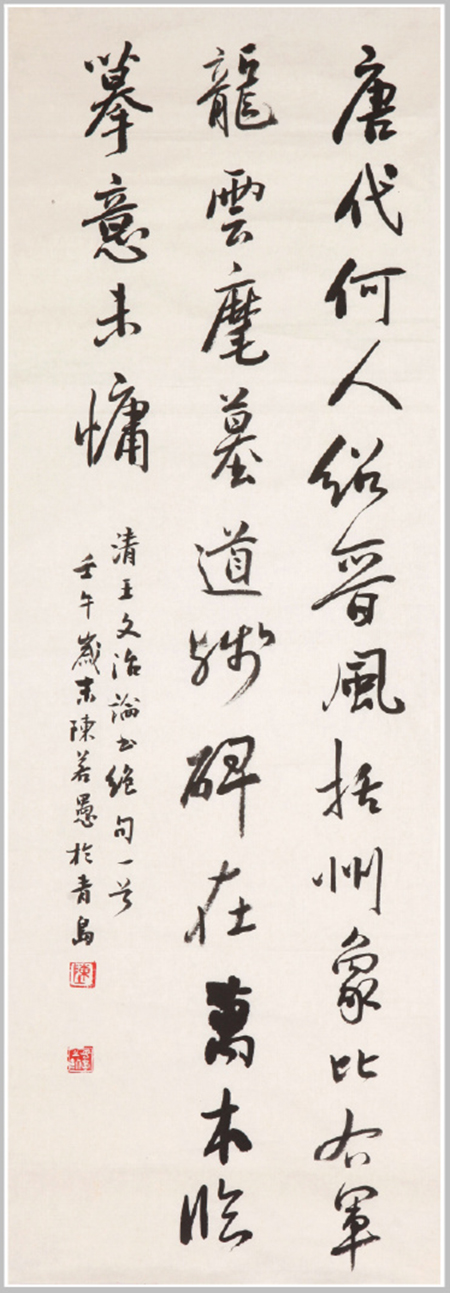 唐代何人紹晉風括州象比右軍
龍雲麾墓道殘碑在萬本臨
摹意未慵
清王文治論書絕句一首
壬午歲末陳若愚於青島
陳